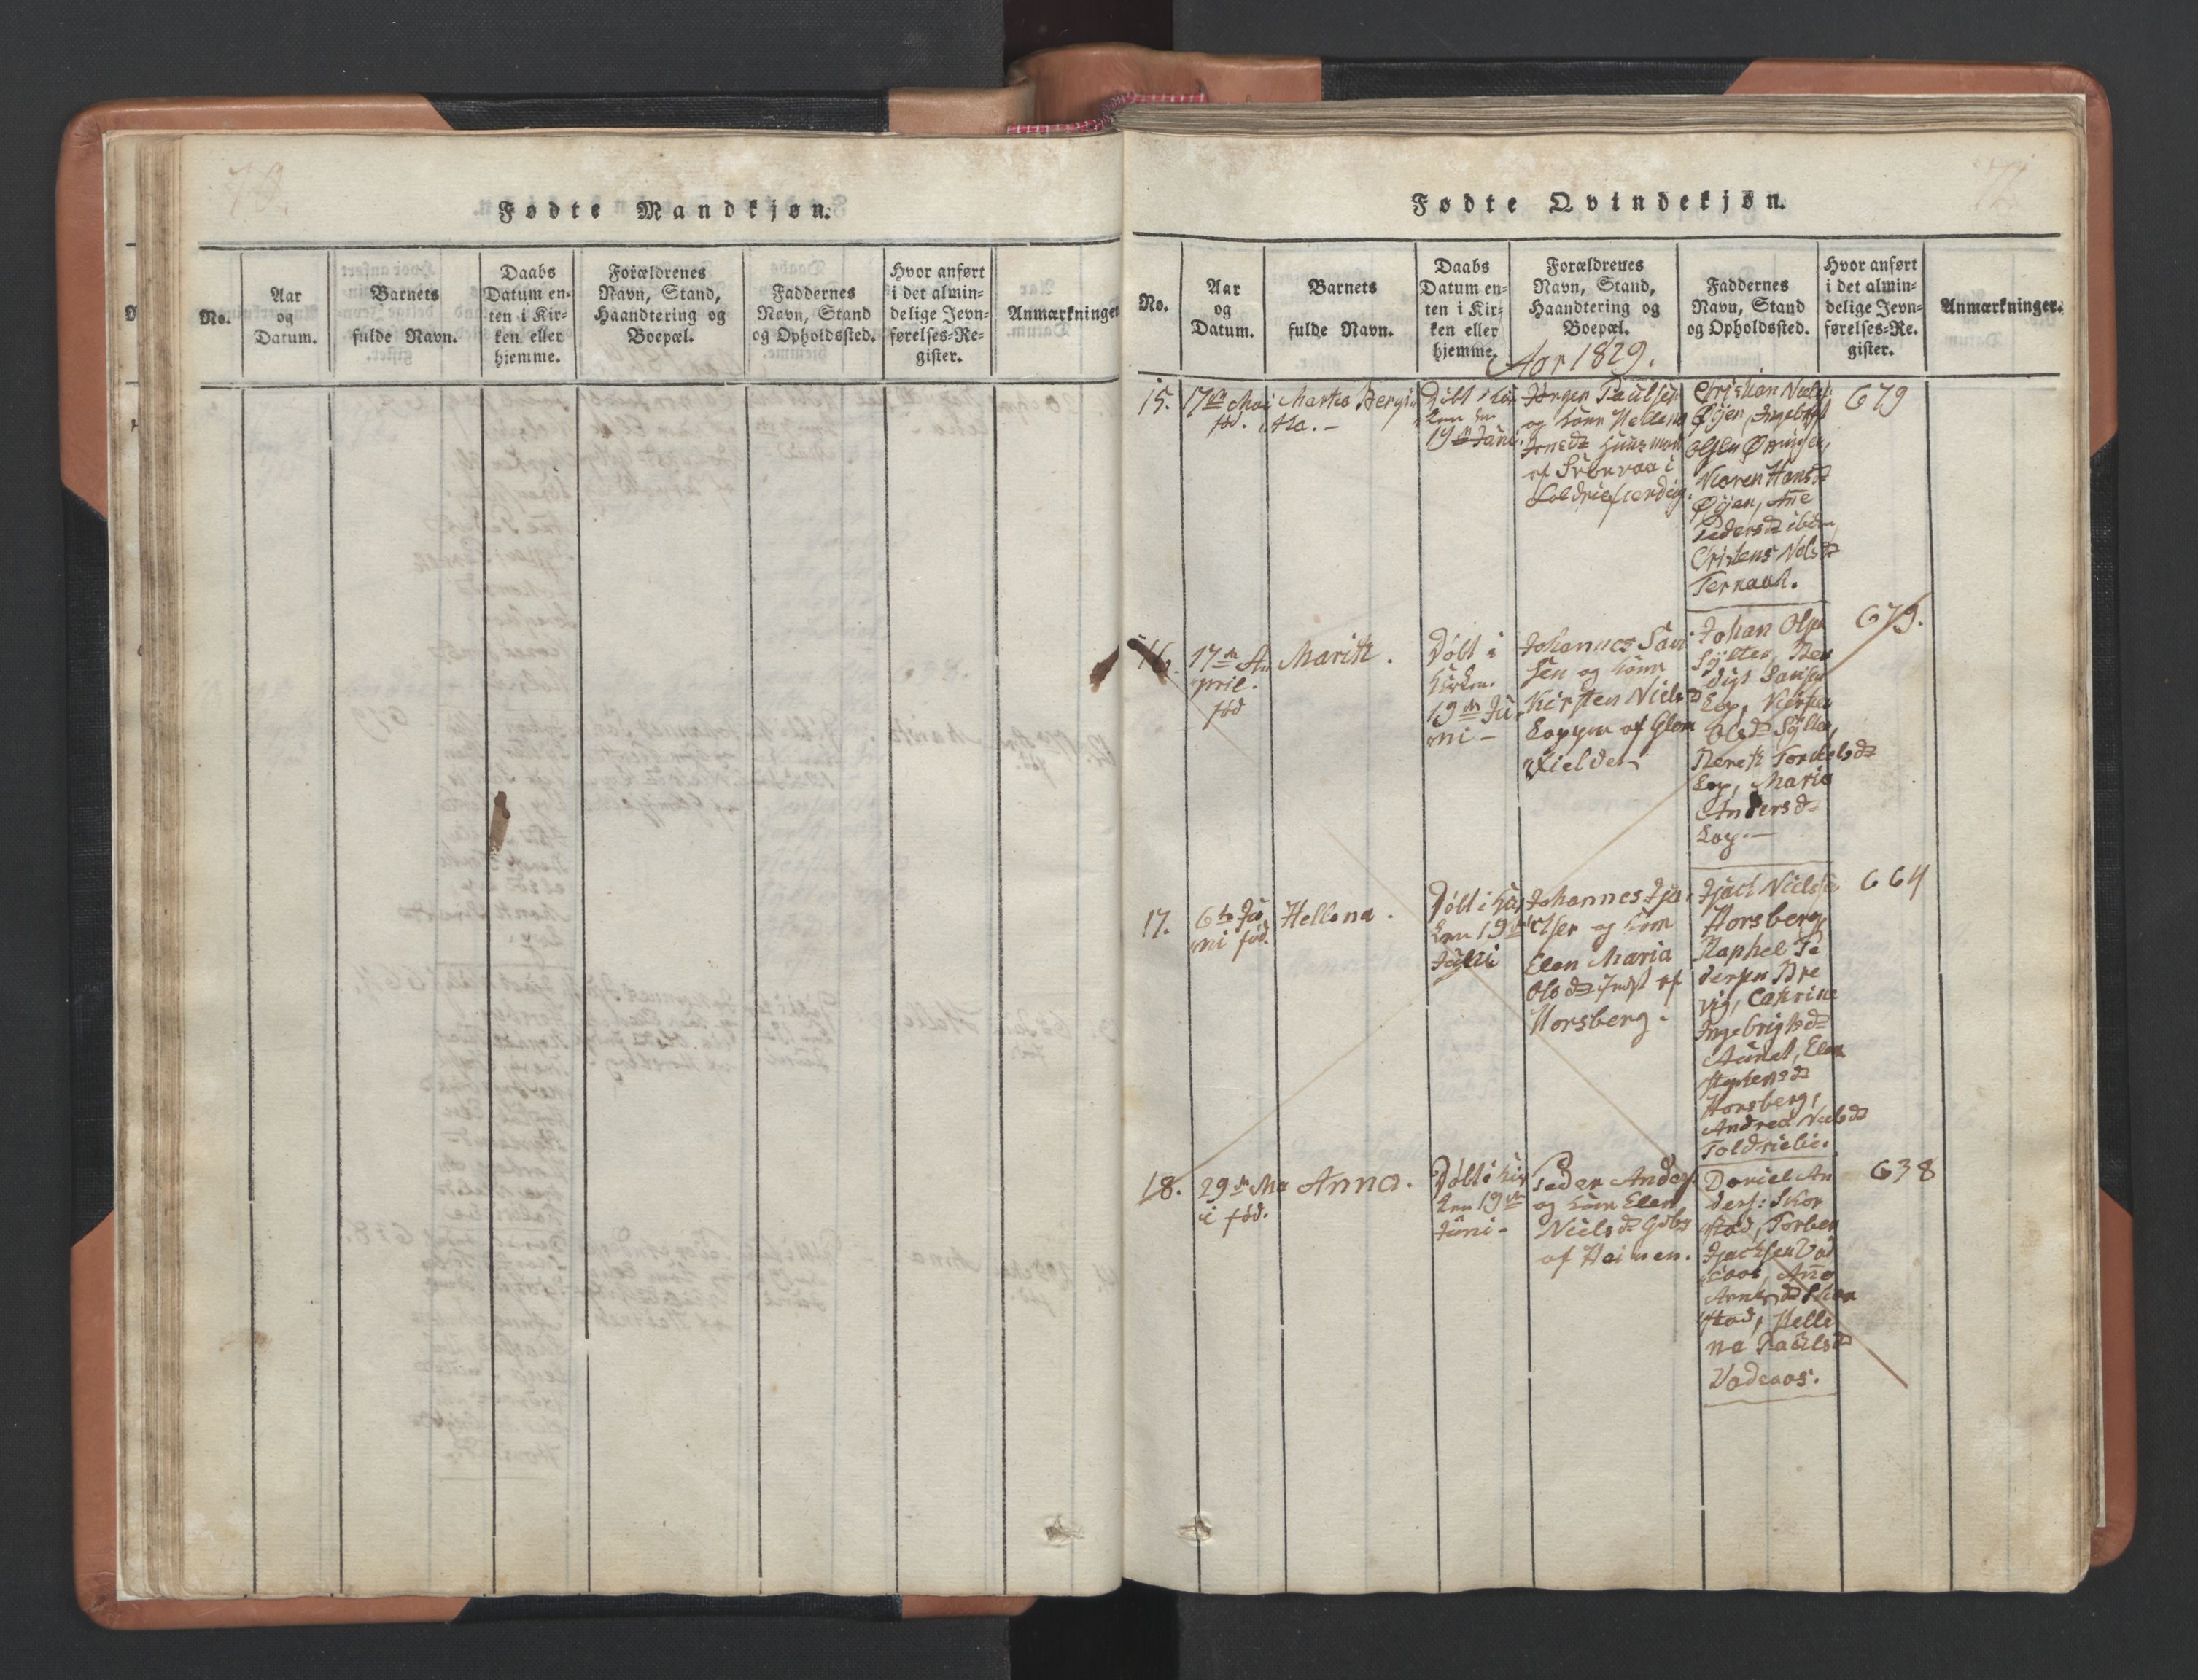 70.
Fødte Mandkjøn.
No.
Aar
og
Datum.
Barnets
fulde Navn.
Daabs
Datum en-
ten i Kir-
ken eller
hjemme.
Forældrenes
Navn, Stand,
Haandtering og
Boepæl.
Faddernes
Navn, Stand
og Opholdssted.
Hvor anført
i det almin-
delige Jevn-
førelses-Re-
gister.
Anmærkninger
71.
Fødte Qvindekjøn.
No.
Aar
og
Datum.
Barnets
fulde Navn.
Daabs
Datum en-
ten i Kir-
ken eller
hjemme.
Forældrenes
Navn, Stand,
Haandtering og
Boepæl.
Faddernes
Navn, Stand
og Opholdssted.
Hvor anført
i det almin-
delige Jevn-
førelses-Re-
gister.
Anmærkninger.
Aar 1829.
15.
17de Mai
fød.
Marta Bergit
ta.
Døbt i Kir
ken den
19de Juni.
Jørgen Paulsen
og Kone Hellena
Jonsdr Huusmand
af
Christian Niels:
Øÿen, Ingebrigt
Olsen
Karen Hansdr
Øÿen, Ane
Pedersdr ibdm,
Nilsdr
679
16.
17de A
pril.
fød
Marith.
Døbt i
Kirken.
19de Ju
ni -
Johannes
sen og Kone
Kirsten Nielsdr
af
Johan Olsen
Sÿlten,
Kirsten
Olsdr Sÿlten,
Bereth Torkelsdr
Loe, Maria
Andersdr
679.
17.
6te Ju
ni fød.
Hellena.
Døbt i Kir
ken 19de
Juni
Johannes Isa
chsen og Kone
Elen Maria
Olsdr Indst af
Horsberg.
Isach Nielsen
Horsberg
Raphel Pe
dersen Bre
vig, Catrine
Ingebrigtsdr
Aunet, Elen
Stephensdr
Horsberg,
Andrea Nielsdr
Toldnielie.
664
18.
29de Ma
i fød.
Anna.
Døbt i Kir
ken 19de
Juni -
Peder Anders.
og Kone Elen
Nielsdr Gdbr
af Heimen.
Daniel An
ders: Skor
stad, Torber
Isachsen
Anna
Arntsdr Skor
stad, Helle
na Paulsdr
638